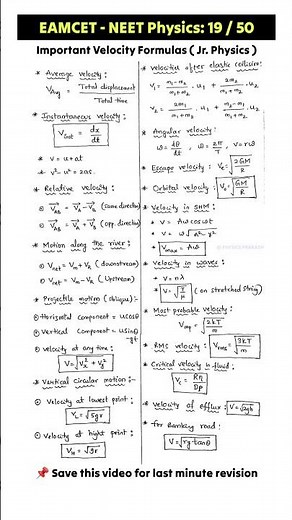 EAMCET - NEET Physics: 19 / 50
Important Velocity Formulas ( Jr. Physics )
* Average Velocity:
Vavg = Total displacement / Total time
* Instantaneous velocity:
Vinst = dx/dt
* V = u+at
* v²-u² = 2as
* Relative velocity:
① V⃗AB = V⃗A - V⃗B (same direction)
② V⃗AB = V⃗A + V⃗B (opp. direction)
* Motion along the river:
① Vnet = Vm + VR (downstream)
② Vnet = Vm - VR (Upstream)
* Projectile motion (oblique):-
① Horizontal component = ucosθ
② Vertical component = usinθ -gt
③ velocity at any time:
V = √Vx² + Vy²
* Vertical Circular motion:-
① Velocity at lowest point:
VL = √5gr
② Velocity at hight point:
VH = √gr
* Velocities after elastic collision:
V₁ = m₁-m₂/m₁+m₂ . u₁ + 2m₂/m₁+m₂ . u₂
V₂ = 2m₁/m₁+m₂ . u₁ + m₂-m₁/m₁+m₂ . u₂
* Angular velocity:
ω = dθ/dt , ω = 2π/T , V = rω
* Escape velocity: Ve = √2GM/R
* Orbital velocity: Vo = √GM/R
* Velocity in SHM:
* V = Aω cosωt
* V = ω√A²-y²
* Vmax = Aω
* Velocity in waves:
* V = nλ
* V = √T/μ (on stretched string)
* Most probable velocity:
Vmp = √2kT/m
* RMS velocity: Vrms = √3kT/m
* Critical velocity in fluid:
Vc = Rη/Dρ
* Velocity of efflux: V = √2gh
* for Banking road:
V = √rg tanθ
📌 Save this video for last minute revision